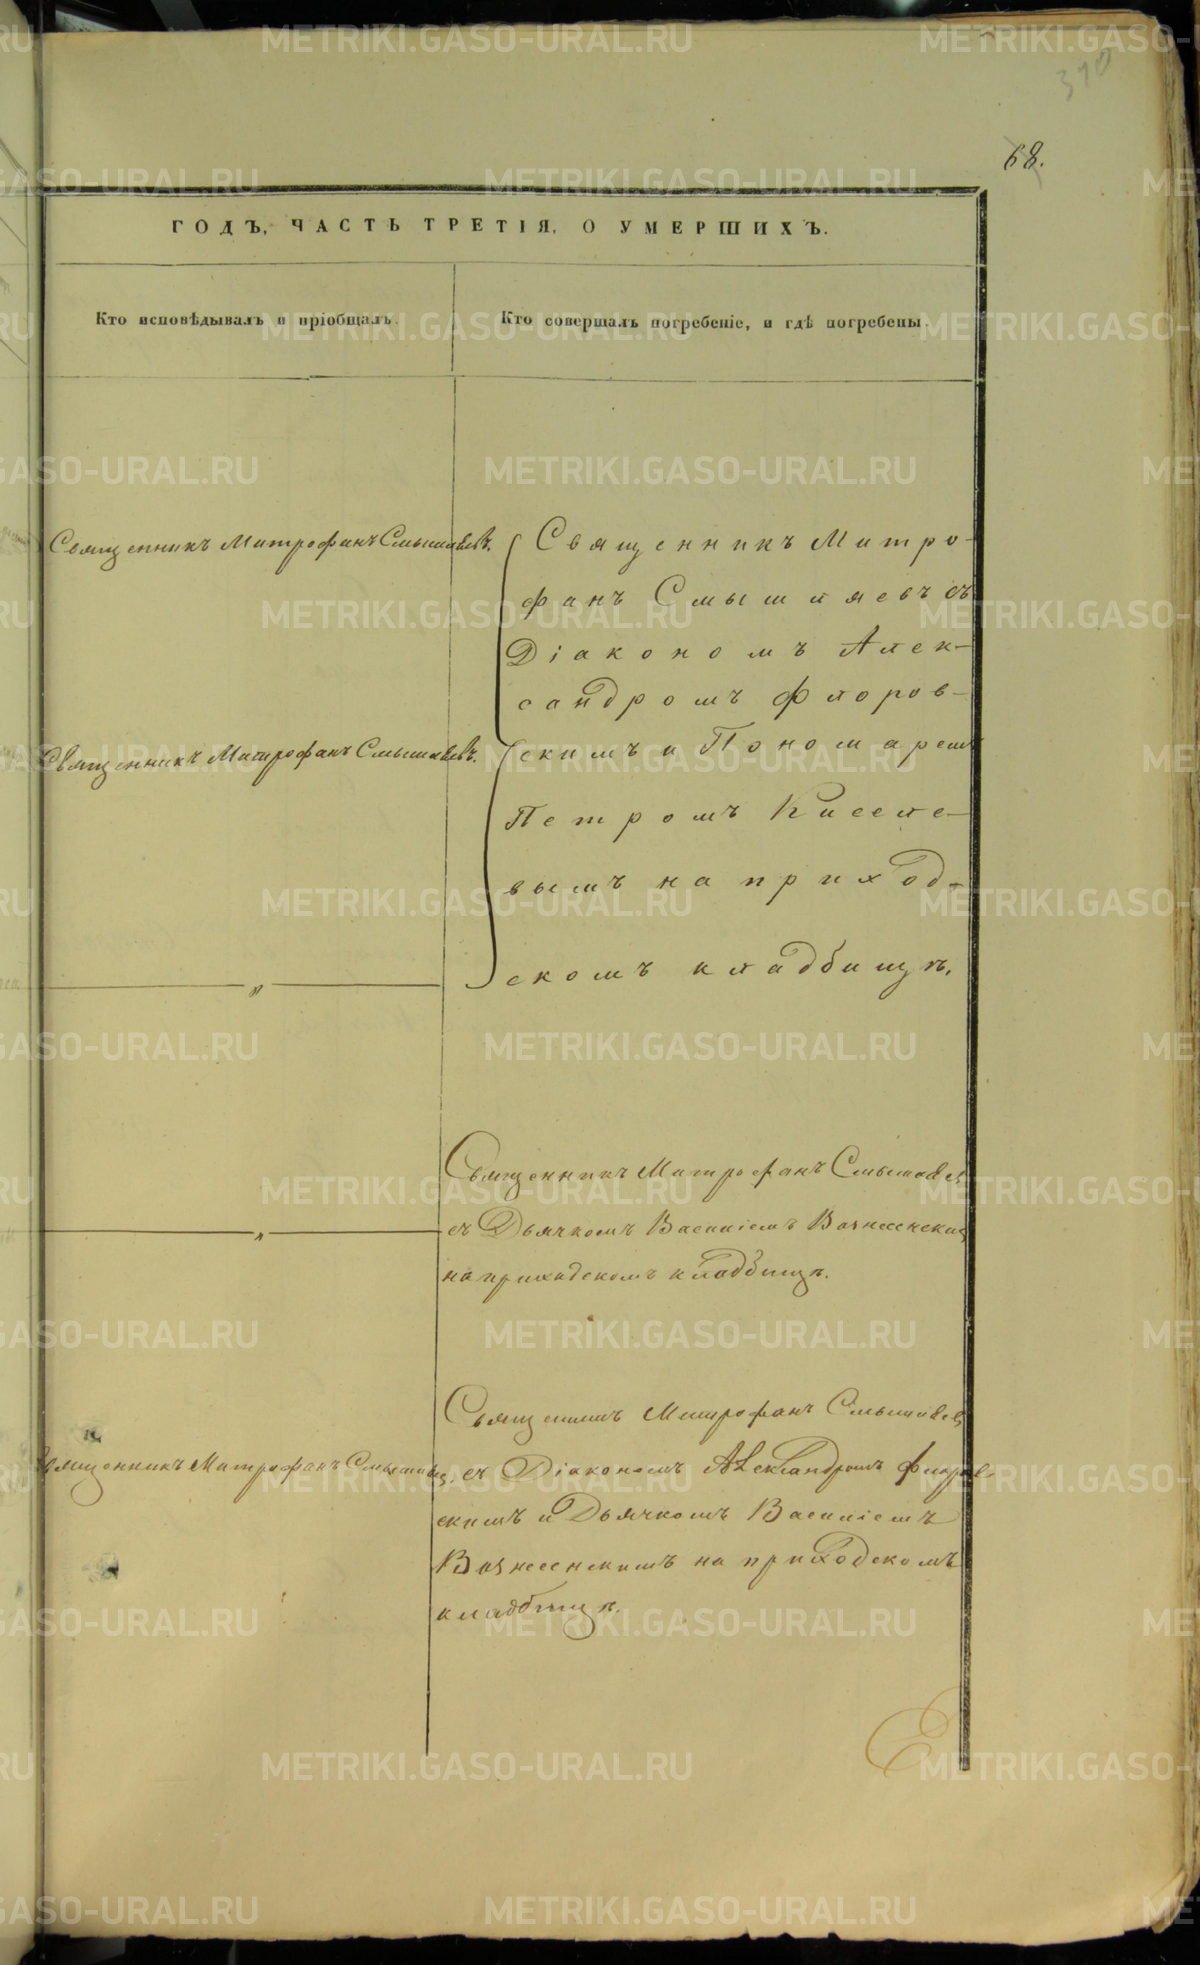 310
68.
ГОДЪ, ЧАСТЬ ТРЕТІЯ, О УМЕРШИХЪ.
Кто исповѣдывалъ и пріобщалъ.
Кто совершалъ погребеніе, и гдѣ погребены.
Священникъ Митрофанъ Смышляевъ.
Священникъ Митро-
фанъ Смышляевъ съ
Діакономъ Алек-
сандромъ Флоров-
Священникъ Митрофанъ Смышляевъ.
скимъ и Пономаремъ
Петромъ Киселе-
вымъ на приход-
скомъ кладбищѣ.
„
Священникъ Митрофанъ Смышляев
„
съ Дьячкомъ Василіемъ Вознесенским
на приходскомъ кладбищѣ.
Священникъ Митрофанъ Смышляев
Священникъ Митрофанъ Смышляев
съ Діакономъ Александромъ Флоров-
скимъ и Дьячкомъ Василіемъ
Вознесенскимъ на приходскомъ
кладбищѣ.
METRIKI.GASO-URAL.RU